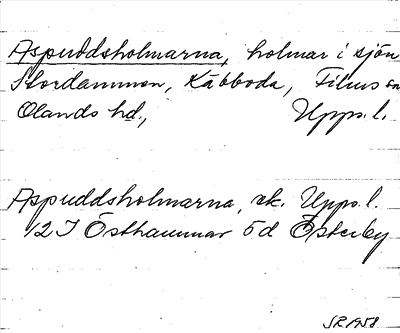 Aspuddsholmarna, holmar i sjön
Stordammen, Kåbboda, Films sn
Olands hd., Upps. l.
Aspuddsholmarna, ek. Upps. l.
12 I Östhammar 5d Österby
SR 1958